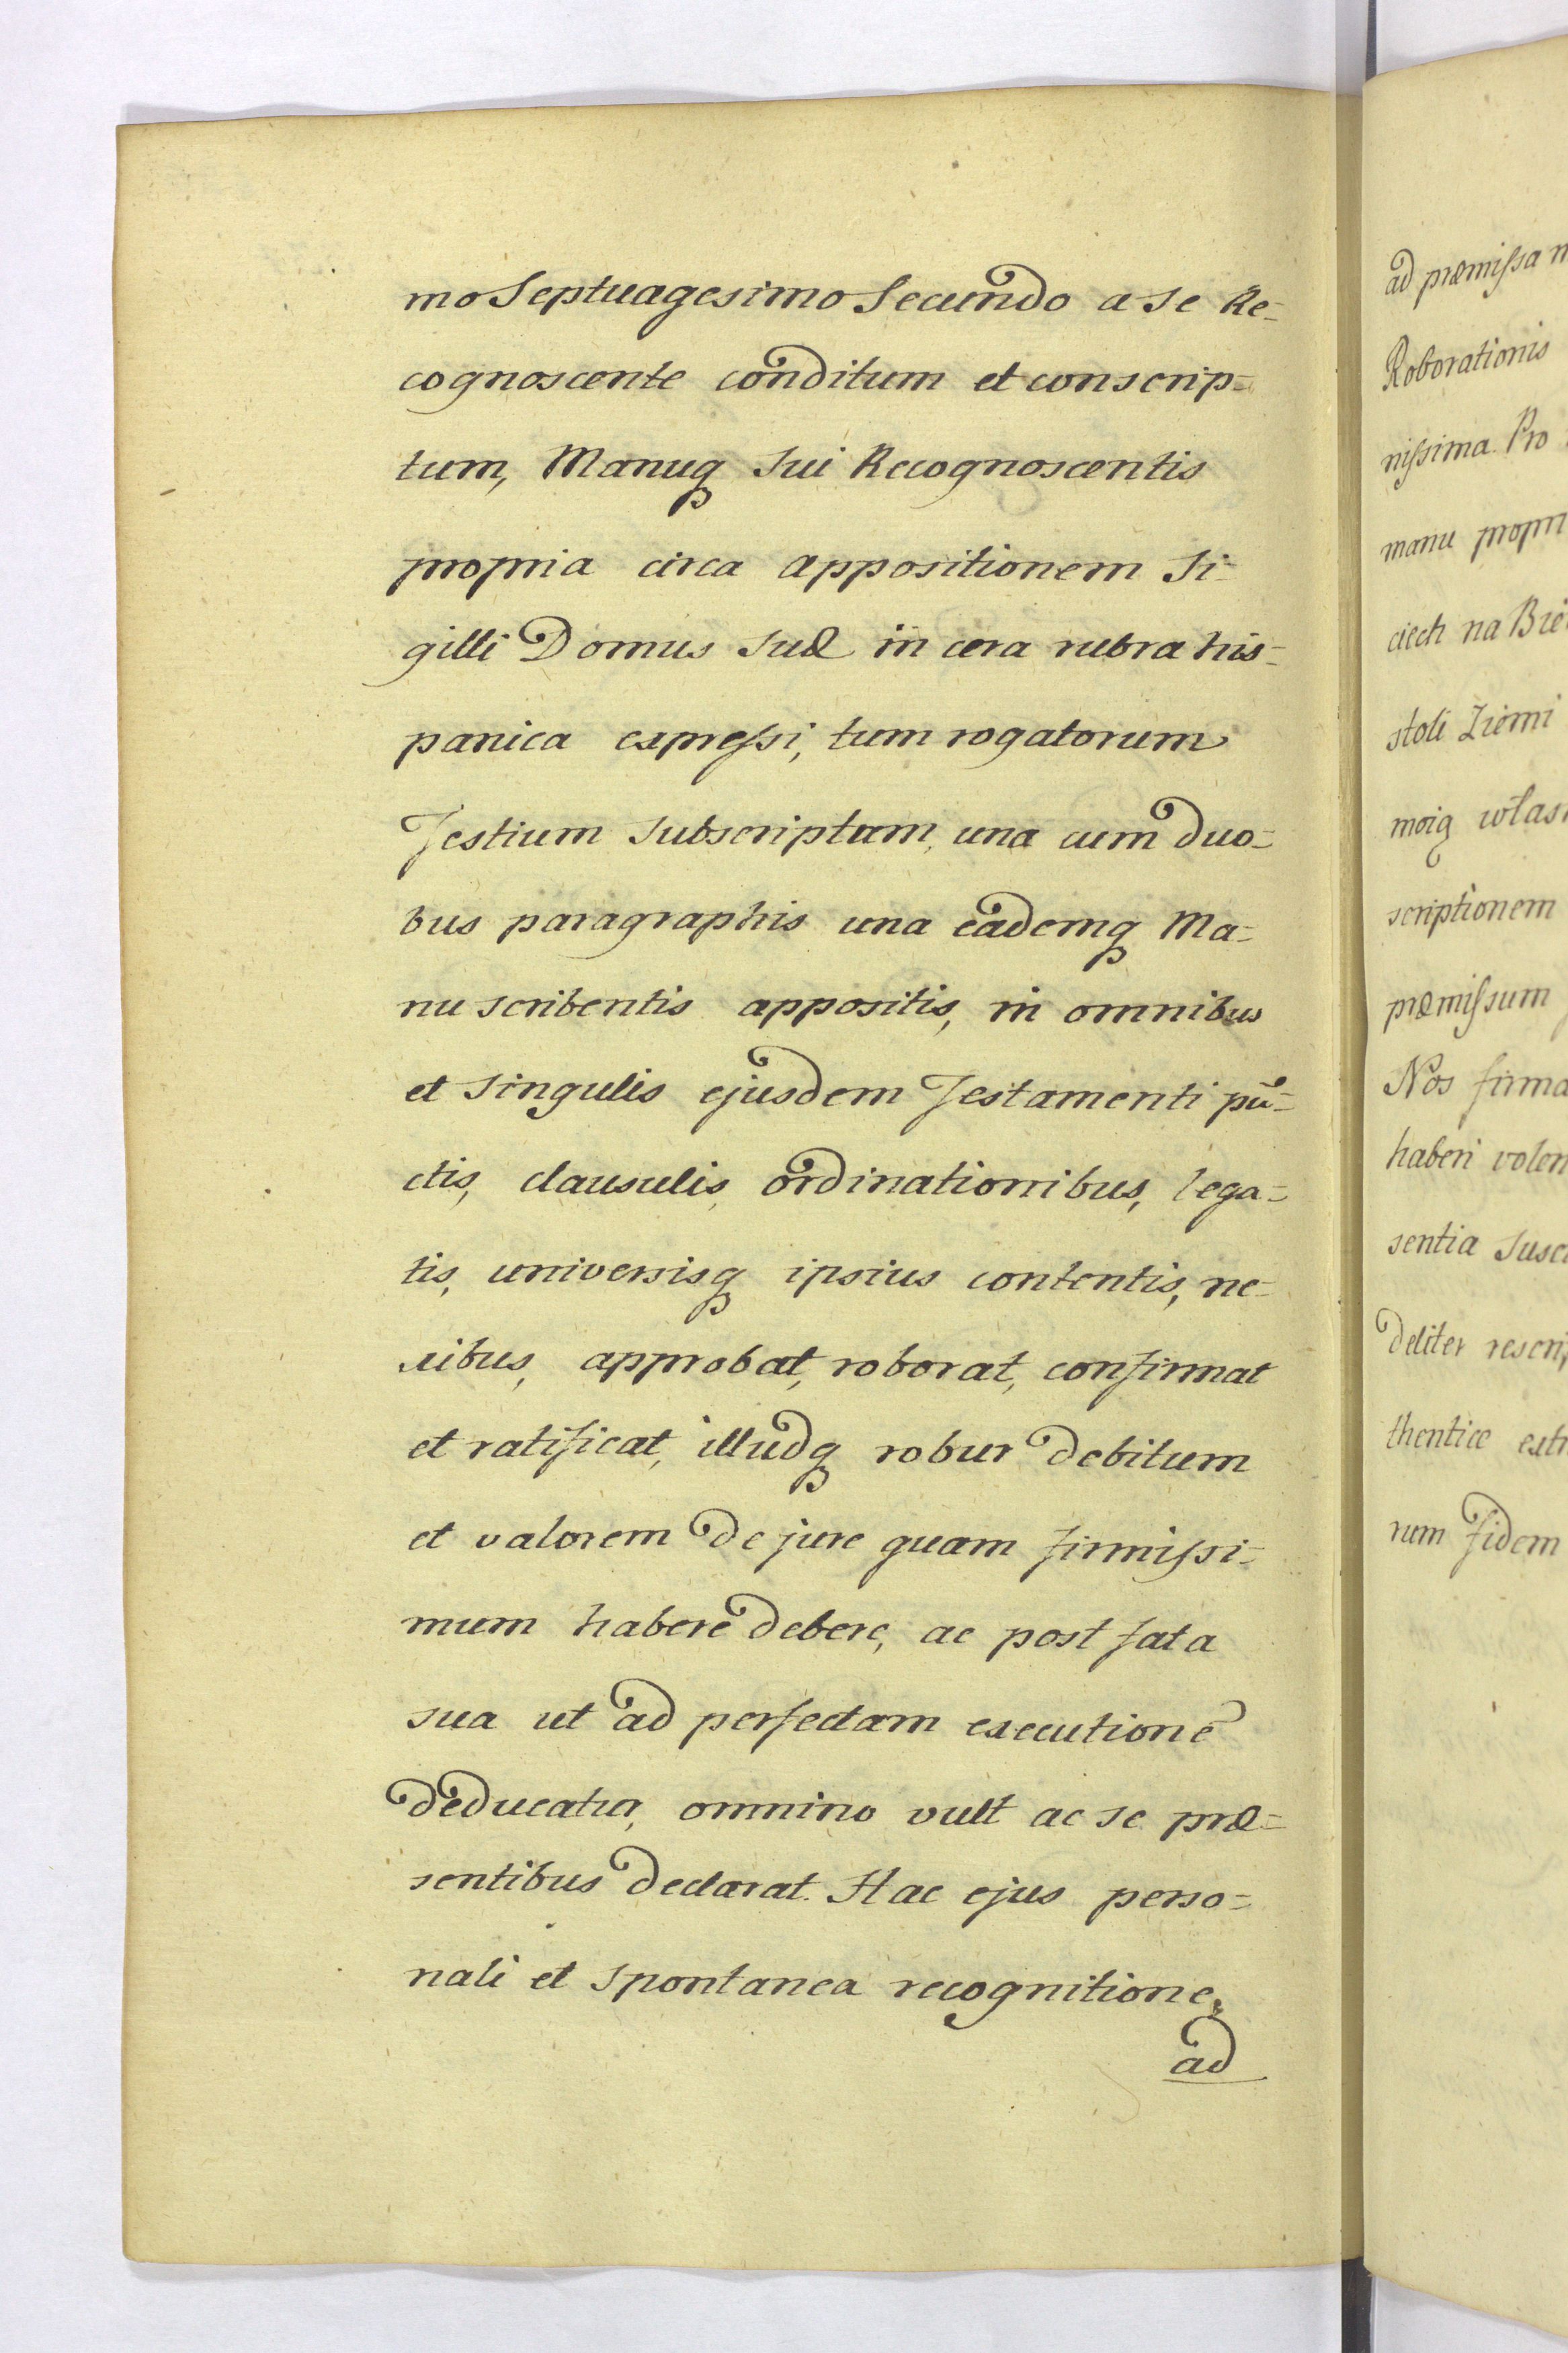 mo Septuagesimo Secundo a se Re=
cognoscente conditum et conscrip=
tum, Manuq sui Recognoscentis
propria circa appositionem Si=
gilli Domus suæ in cera rubra his=
panica expressi, tum rogatorum
Testium subscriptam, una cum duo=
bus paragraphis una eademq Ma=
nu scribentis appositis, in omnibus
et singulis ejusdem Testamenti pũ=
ctis, clausulis, ordinationibus, lega=
tis, universisq ipsius contentis, ne=
xibus, approbat, roborat, confirmat
et ratificat, illudq robur debitum
et valorem de jure quam firmissi=
mum habere debere, ac post fata
sua ut ad perfectam executionẽ
deducatur, omnino vult ac se præ=
sentibus declarat. Hac ejus perso=
nali et spontanea recognitione,
ad
ad præmissa
Roborationis
nissima. Pro
manu
ciech na
stoli Ziemi
moią
scriptionem
præmissum
Nos
haberi
sentia
deliter
thentice
rum fidem